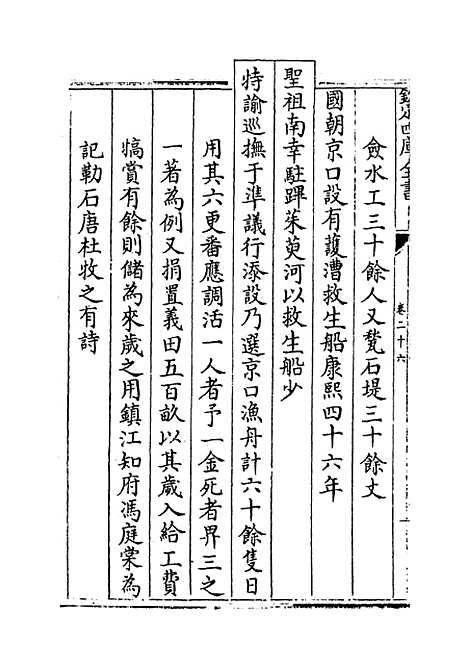 欽定四庫全書
卷二十六
僉水工三十餘人又甃石堤三十餘丈
國朝京口設有護漕救生船康熙四十六年
聖祖南幸駐蹕茱萸河以救生船少
特諭巡撫于準議行添設乃選京口漁舟計六十餘隻日
用其六更番應調活一人者予一金死者畀三之
一著為例又捐置義田五百畝以其歲入給工費
犒賞有餘則儲為來歲之用鎮江知府馮庭棠為
記勒石唐杜牧之有詩